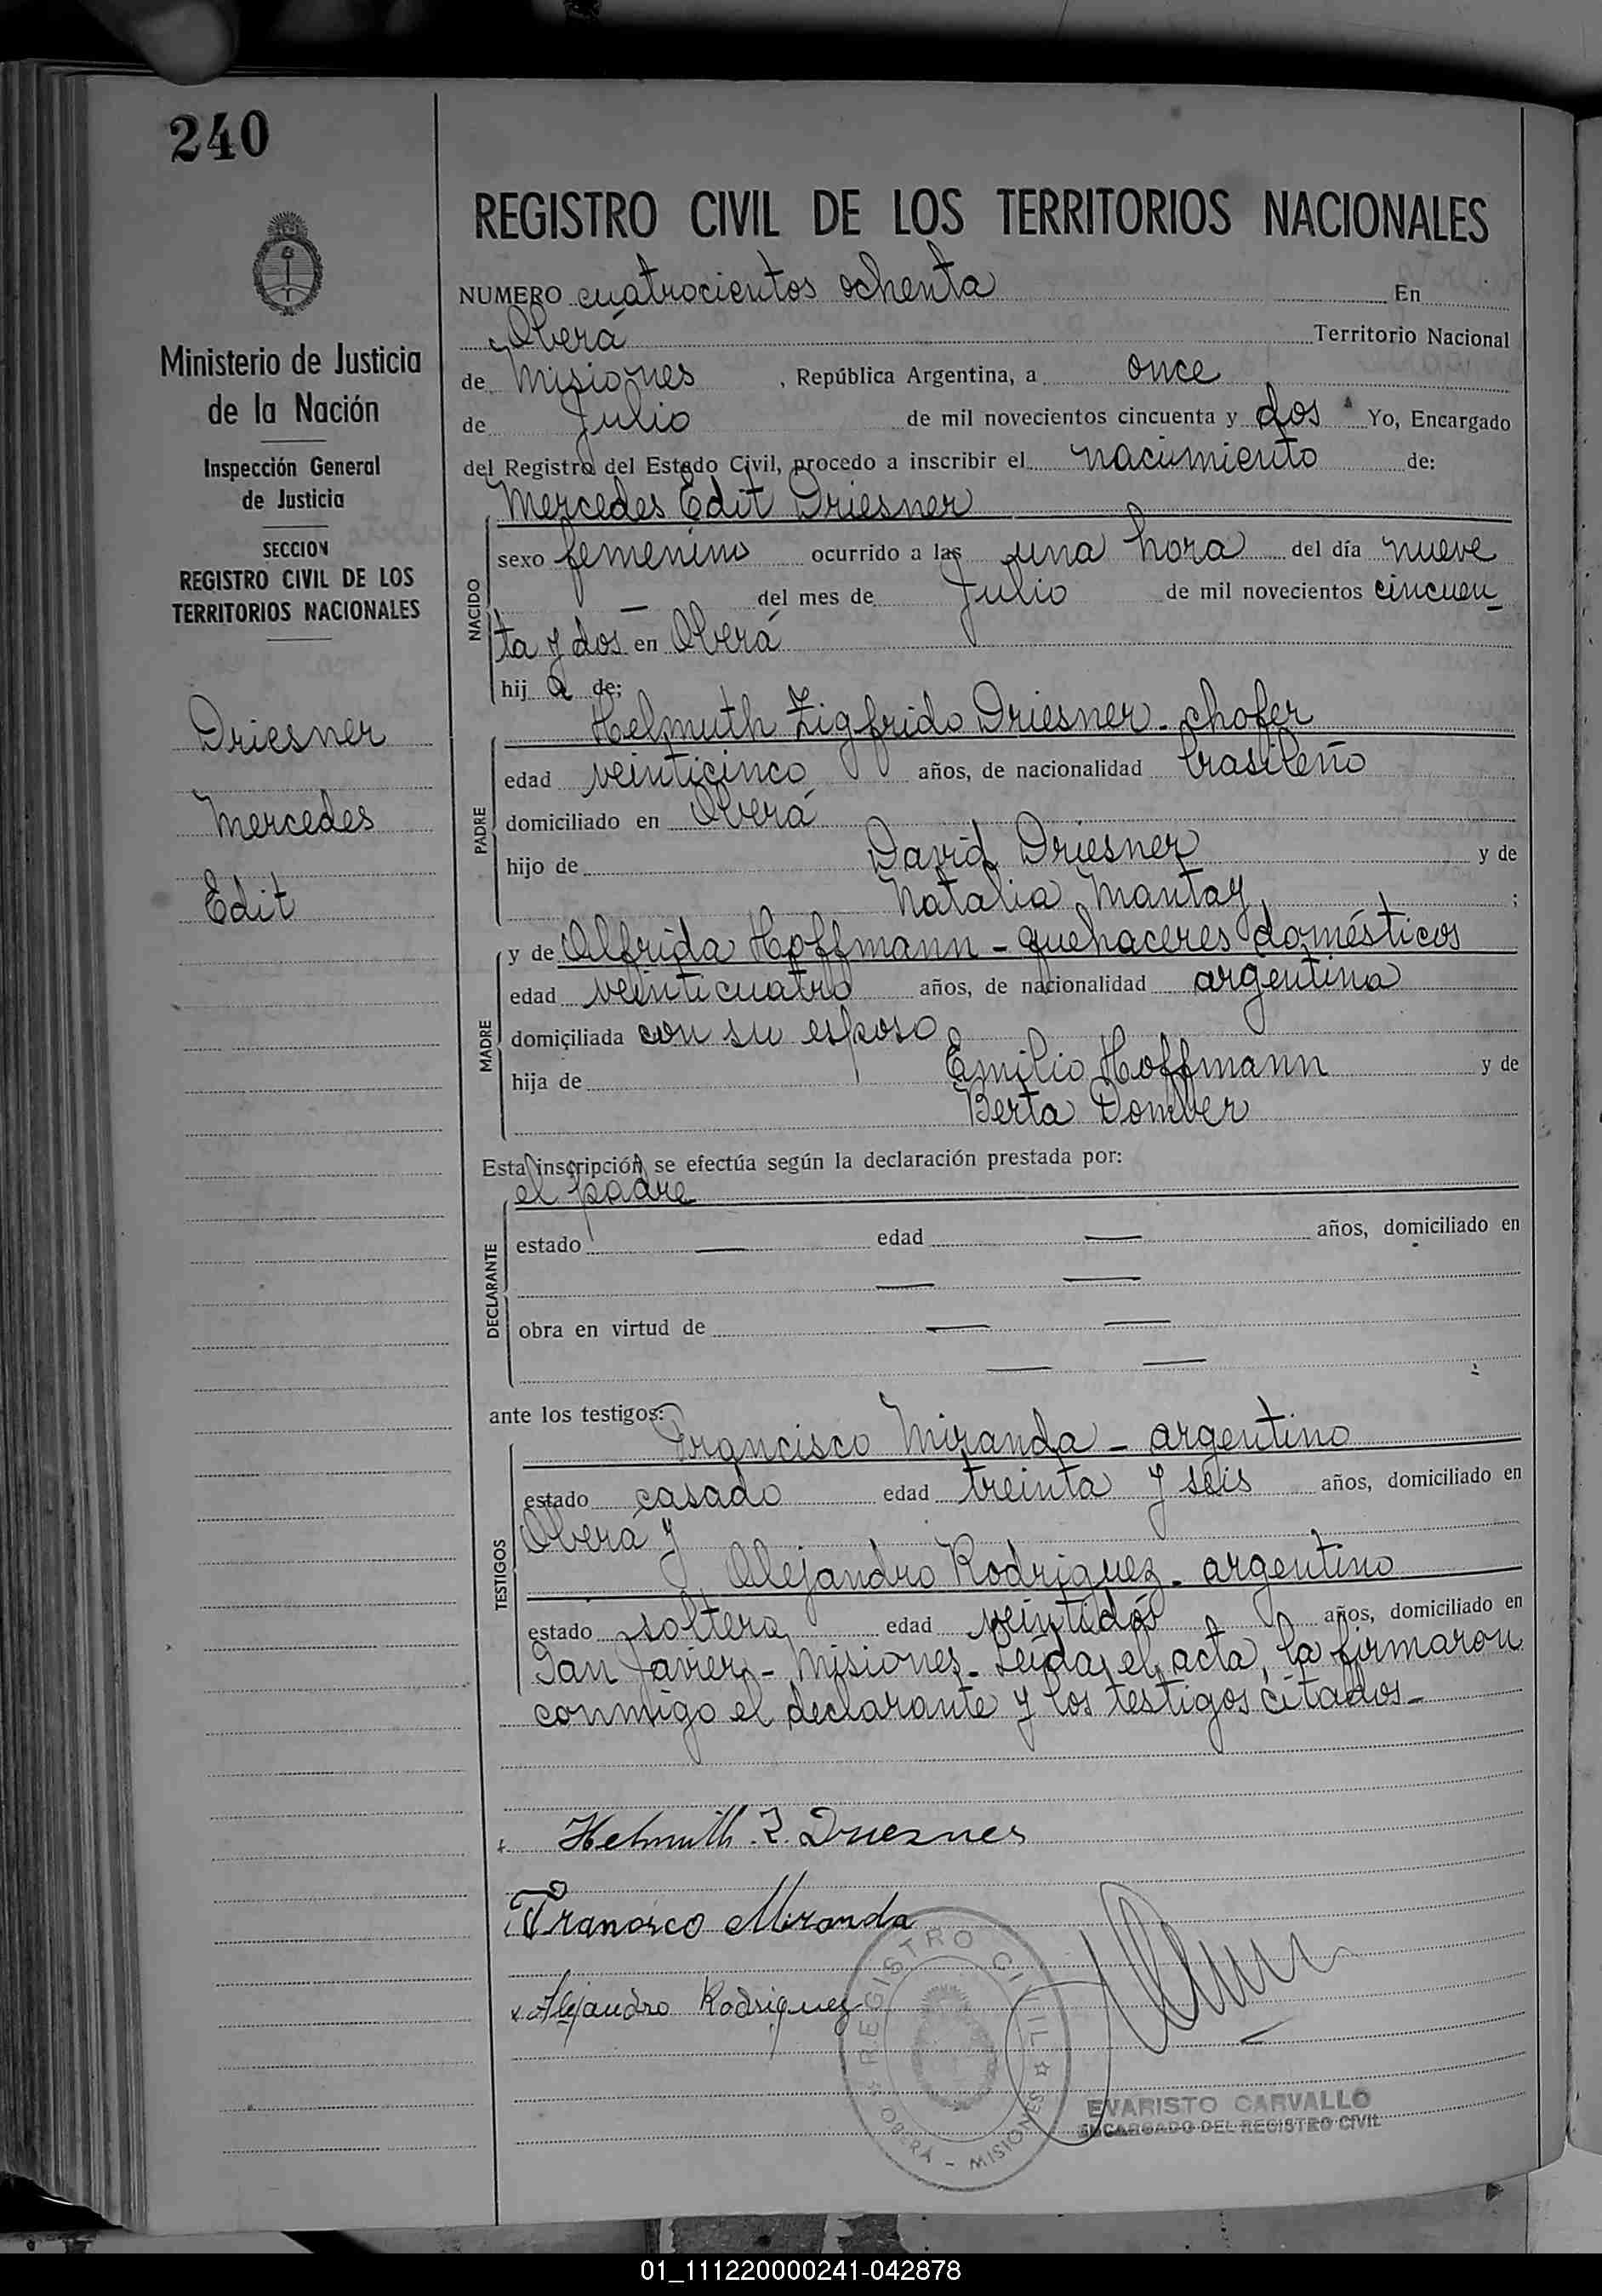 240
Ministerio de Justicia
de la Nación
Inspección General
de Justicia
SECCION
REGISTRO CIVIL DE LOS
TERRITORIOS NACIONALES
Driesner
Mercedes
Edit
REGISTRO CIVIL DE LOS TERRITORIOS NACIONALES
NUMERO cuatrocientos ochenta En
Oberá Territorio Nacional
de Misiones, República Argentina, a once
de Julio de mil novecientos cincuenta y dos Yo, Encargado
del Registro del Estado Civil, procedo a inscribir el nacimiento de:
Mercedes Edit Driesner
NACIDO
sexo femenino ocurrido a las una hora del día nueve
— del mes de Julio de mil novecientos cincuen_
ta y dos en Oberá
hij a de:
Helmuth Zigfrido Driesner - chofer
PADRE
edad veinticinco años, de nacionalidad brasileño
domiciliado en Oberá
hijo de David Driesner y de
Natalia Mantay ;
y de Alfrida Hoffmann - quehaceres domésticos
MADRE
edad veinticuatro años, de nacionalidad argentina
domiciliada con su esposo
hija de Emilio Hoffmann y de
Berta Domber
Esta inscripción se efectúa según la declaración prestada por:
el padre
DECLARANTE
estado — edad — años, domiciliado en
— —
obra en virtud de — —
— — ;
ante los testigos:
Francisco Miranda - argentino
TESTIGOS
estado casado edad treinta y seis años, domiciliado en
Oberá y
Alejandro Rodriguez - argentino
estado soltero edad veintidós años, domiciliado en
San Javier - Misiones - Leída el acta, la firmaron
conmigo el declarante y los testigos citados -
Helmuth Z. Driesner
Francisco Miranda
Alejandro Rodriguez
REGISTRO CIVIL
OBERÁ - MISIONES
EVARISTO CARVALLO
ENCARGADO DEL REGISTRO CIVIL
01_111220000241-042878